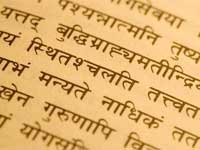 गसेवया
पश्यन्नात्मनि तुष्य
यत्तद् बुद्धिग्राह्यमतीन्द्रि
यं स्थितश्चलति तत्त्वत
भं मन्यते नाधिकं त
खेन गुरुणापि वि
योगसं